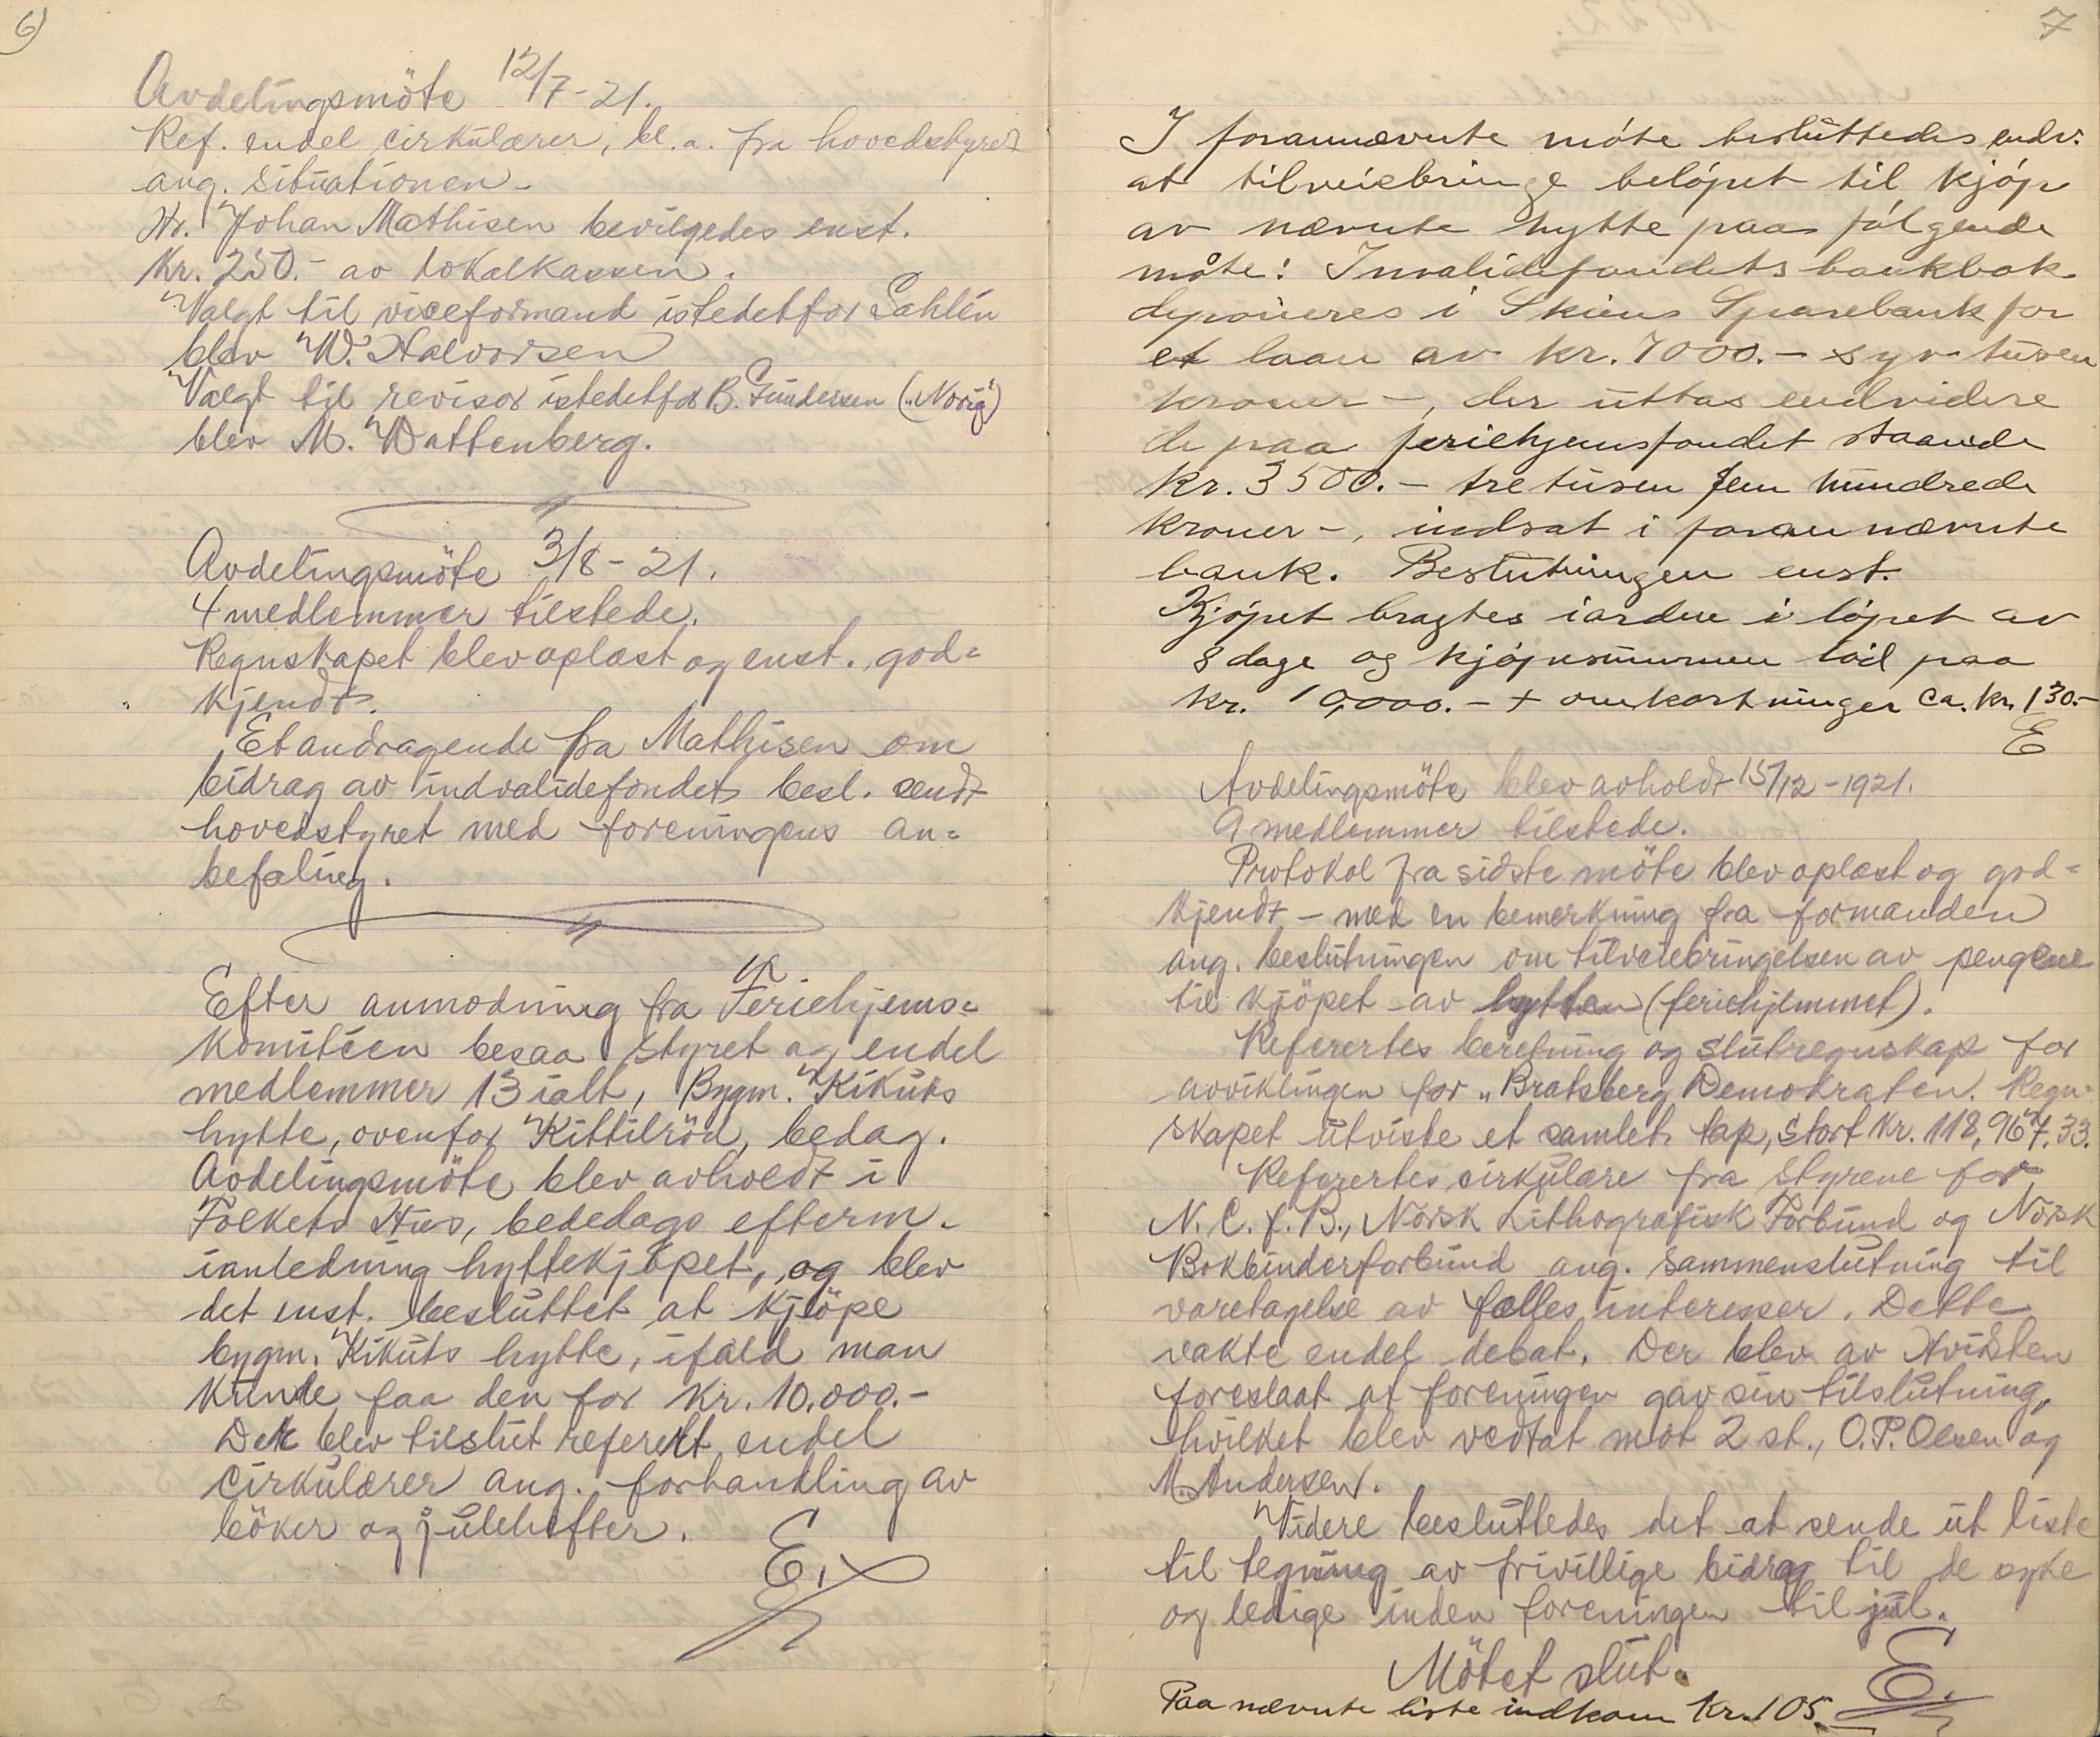 6)
Avdelingsmöte 12/7-21.
Ref. endel cirkulærer, bl.a. fra hovedstyret
ang. situationen.
Hr. Johan Mathisen bevilgedes enst.
Kr. 250.- av lokalkassen.
Valgt til viceformand istedetfor Sahlén
blev W. Halvorsen
Valgt til revisor istedetfor B. Gundersen („Norig")
blev M. Wattenberg.
Avdelingsmöte 3/8-21.
4 medlemmer tilstede.
Regnskapet blev oplæst og enst. god=
kjendt.
Et andragende fra Mathisen om
bidrag av indvalidefondet besl. sendt
hovedstyret med foreningens an=
befaling.
Efter anmodning fra Feriehjems=
komitéen besaa styret og endel
medlemmer 13 ialt, Bygm. Kikuts
hytte, ovenfor Kittilröd, bedag.
Avdelingsmöte blev avholdt i
Folkets Hus, bededags efterm.
ianledning hyttekjöpet, og blev
det enst. besluttet at kjöpe
bygm. Kikuts hytte, ifald man
kunde faa den for Kr. 10.000.-
Det blev tilslut referert endel
cirkulærer ang. forhandling av
böker og julehefter.
E.
7
I forannævnte móte besluttedes endv.
at tilveiebringe belópet til kjóp
av nævnte hytte paa fólgende
måte: Invalidefondets bankbok
deponeres i Skiens Sparebank for
et laan av kr. 7000.- syv tusen
kroner -, der uttas endvidere
de paa feriehjemsfondet staaende
kr. 3500.- tre tusen fem hundrede
kroner -, indsat i forannævnte
bank. Beslutningen enst.
Kjópet bragtes iorden i lópet av
8 dage og kjópesummen lód paa
kr. 10,000.- + omkostninger ca. kr. 130.-
E
Avdelingsmöte blev avholdt 15/12-1921.
9 medlemmer tilstede.
Protokol fra sidste möte blev oplæst og god=
kjendt - med en bemerkning fra formanden
ang. beslutningen om tilveiebringelsen av pengene
til kjöpet av hytten (feriehjemmet).
Referertes beretning og slutregnskap for
avviklingen for „Bratsberg Demokraten. Regn=
skapet utviste et samlet tap, stort Kr. 118,967.33.
Referertes cirkulære fra styrene for
N. C. f. B., Norsk Lithografisk Forbund og Norsk
Bokbinderforbund ang. sammenslutning til
varetagelse av fælles interesser. Dette
vakte endel debat. Der blev av Hvidsten
foreslaat at foreningen gav sin tilslutning,
hvilket blev vedtat mot 2 st., O.P. Olsen og
M. Andersen.
Videre besluttedes det at sende ut liste
til tegning av frivillige bidrag til de syke
og ledige inden foreningen til jul.
Mötet slut.
E.
Paa nævnte liste indkom Kr. 105.-